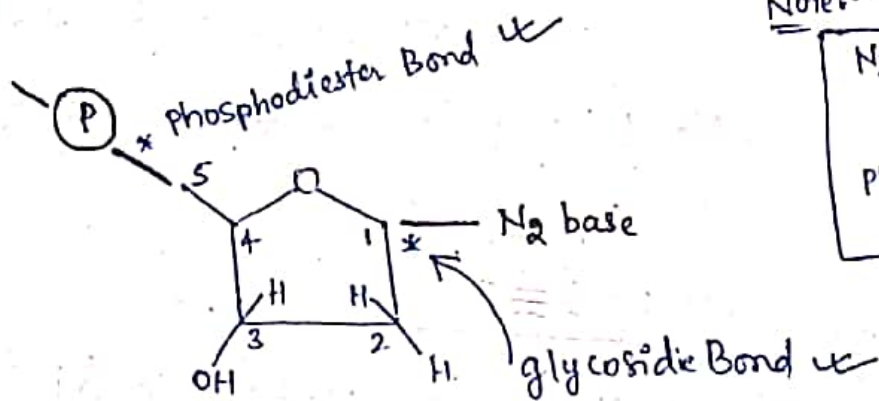 Note:
N
P
P * Phosphodiester Bond
5
O
4 1 * N2 base
H H
3 2
OH H. glycosidic Bond